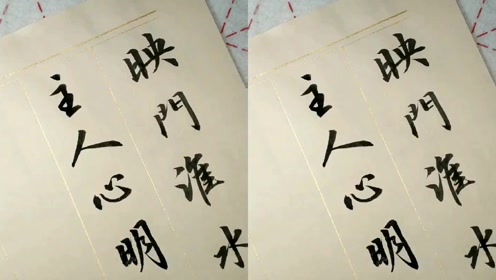 映門淮水
主人心明
映門淮水
主人心明